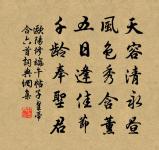 天容清永晝
風色秀含薰
五日逢佳節
千齡奉聖君
歐陽修端午帖子皇帝
合六首詞典網集